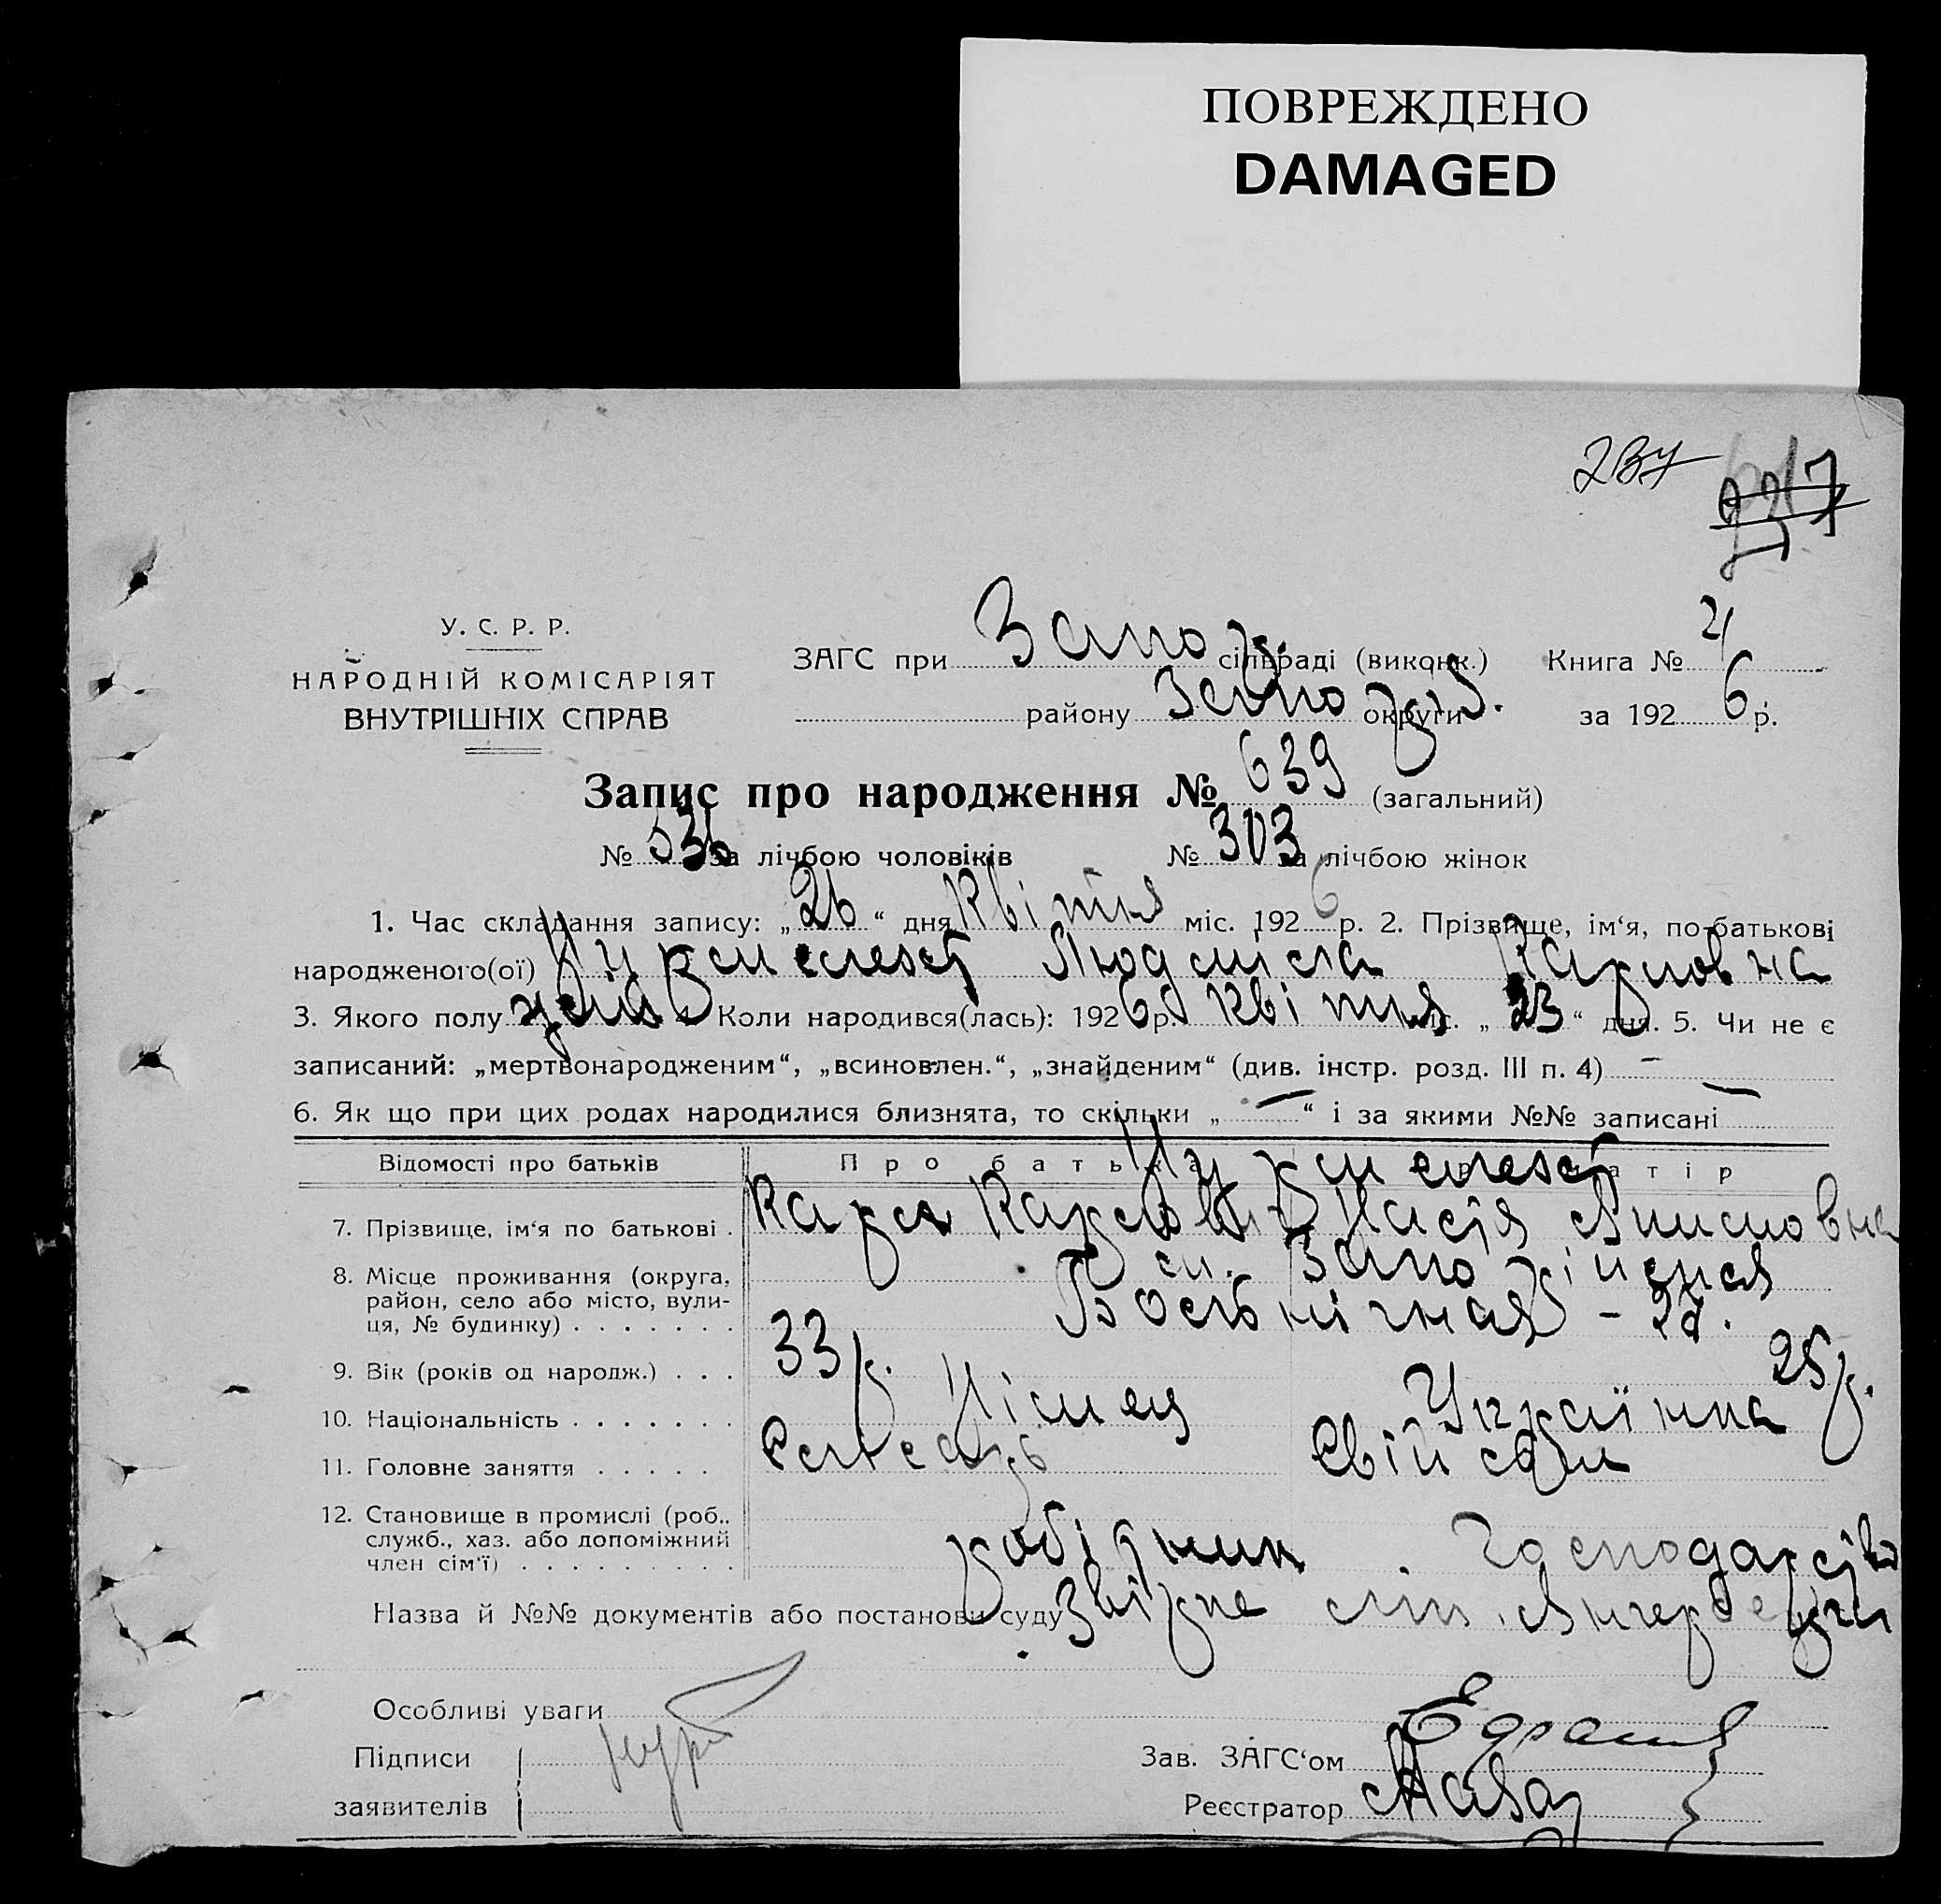 ПОВРЕЖДЕНО
DAMAGED
237
У. С. Р. Р.
НАРОДНІЙ КОМІСАРІЯТ
ВНУТРІШНІХ СПРАВ
ЗАГС при Запор. сільраді (виконк.) Книга № 4
району Запоріз. округи за 1926 р.
Запис про народження № 639 (загальний)
№ 336 за лічбою чоловіків № 303 за лічбою жінок
1. Час складання запису: „26“ дня Квітня міс. 1926 р. 2. Прізвище, ім‘я, по-батькові
народженого(ої) Людміла Карловна
3. Якого полу жін. 4. Коли народився(лась): 1926 р. Квітня міс. „23“ дня. 5. Чи не є
записаний: „мертвонародженим“, „всиновлен.“, „знайденим“ (див. інстр. розд. III п. 4) —
6. Як що при цих родах народилися близнята, то скільки „—“ і за якими №№ записані —
Відомості про батьків Про батька Про матір
7. Прізвище, ім‘я по батькові . Карл Карлович
8. Місце проживання (округа, район, село або місто, вули-ця, № будинку) . . . . . . . м. Запоріжжя
Больнічная – 27.
9. Вік (років од народж.) . . . 33 р. 25 р.
10. Національність . . . . . . . Німец Українка
11. Головне заняття . . . . . Слесарь Свій дом
12. Становище в промислі (роб., служб., хаз. або допоміжний член сім‘ї) . . . . . . . . . робітник господарство
Назва й №№ документів або постанови суду
Особливі уваги
Підписи
заявителів
Зав. ЗАГС‘ом
Реєстратор